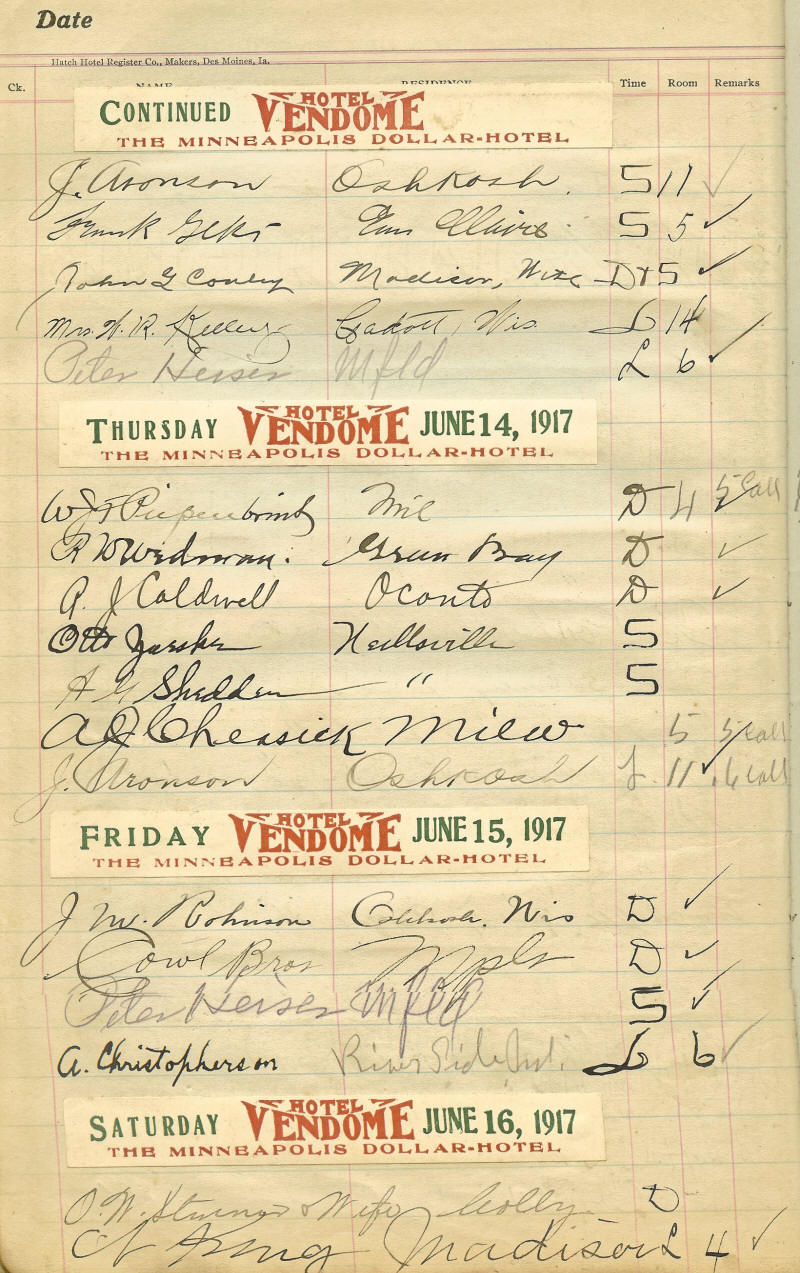 Date
Hatch Hotel Register Co., Makers, Des Moines, Ia.
Ck. NAME RESIDENCE Time Room Remarks
CONTINUED HOTEL VENDOME
THE MINNEAPOLIS DOLLAR-HOTEL
J. Aronson Oshkosh. S 11 ✓
Frank Eau Claire S 5 ✓
John G Conley Madison, Wis D+S ✓
Mrs. W. R. Kelley Cadott, Wis. L 14
Peter Heiser Mfld L 6 ✓
THURSDAY HOTEL VENDOME JUNE 14, 1917
THE MINNEAPOLIS DOLLAR-HOTEL
Mil D 4 5 Call
Widman. Green Bay D ✓
A. J Caldwell Oconto D ✓
Otto Neillsville S
A G Shedden " S
A J Chessick Milw 5 5 Call
J. Aronson Oshkosh L. 11 ✓ 6 Call
FRIDAY HOTEL VENDOME JUNE 15, 1917
THE MINNEAPOLIS DOLLAR-HOTEL
J W. Robinson Oshkosh, Wis D ✓
Cowl Bros Mpls D ✓
Peter Heiser Mfld S ✓
A. Christopherson River Side L 6 ✓
SATURDAY HOTEL VENDOME JUNE 16, 1917
THE MINNEAPOLIS DOLLAR-HOTEL
O. W. & Wife Colby D
King Madison L 4 ✓